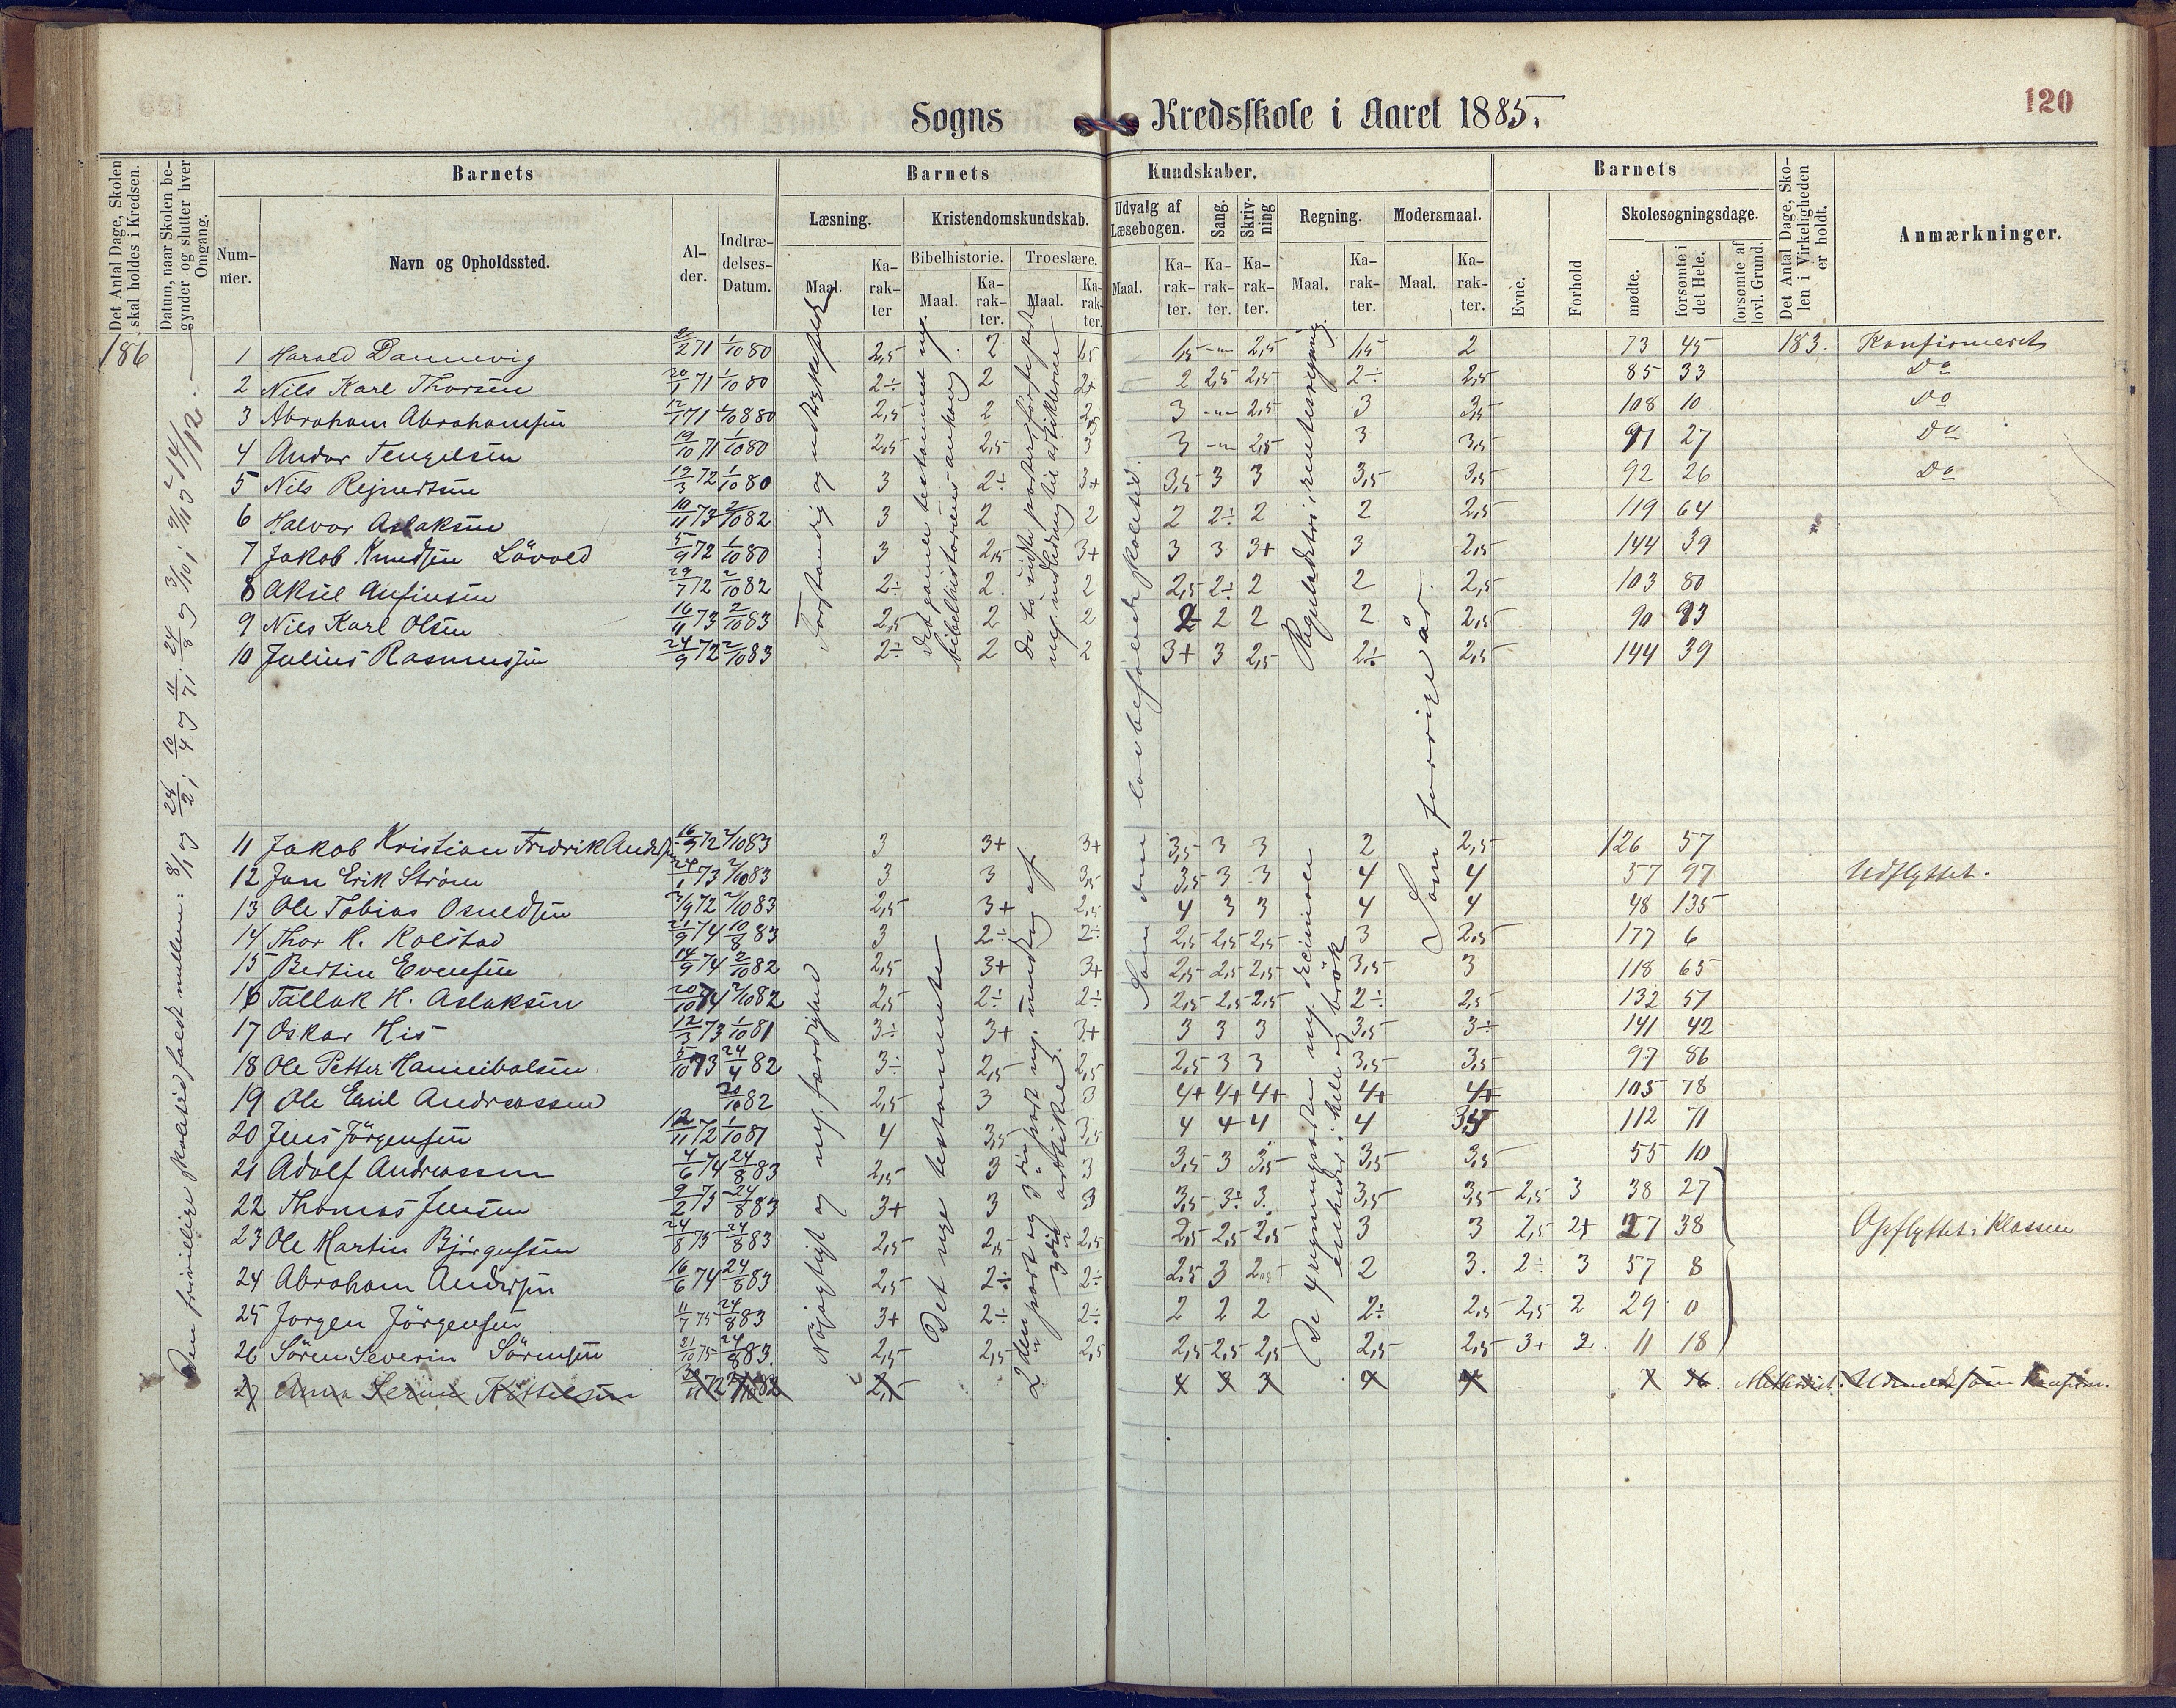 Sogns Kredsskole i Aaret 1885.
120
Det Antal Dage, Skolen skal holdes i Kredsen.
Datum, naar Skolen begynder og slutter hver Omgang.
Barnets
Nummer.
Navn og Opholdssted.
Alder.
Indtrædelses-Datum.
Barnets Kundskaber.
Læsning.
Maal.
Karakter
Kristendomskundskab.
Bibelhistorie.
Maal.
Karakter.
Troeslære.
Maal.
Karakter.
Udvalg af Læsebogen.
Maal.
Karakter.
Sang.
Karakter.
Skrivning
Karakter.
Regning.
Maal.
Karakter.
Modersmaal.
Maal.
Karakter.
Barnets
Evne.
Forhold
Skolesøgningsdage.
mødte.
forsømte i det Hele.
forsømte af lovl. Grund.
Det Antal Dage, Skolen i Virkeligheden er holdt.
Anmærkninger.
186
Den frivillige skoletid faldt mellem:
Forstandig og udtryksfuld
Det gamle testamente ny.
Som den lovbefalede skoletid.
Som forrige år.
Nöjagtigt og ny. færdighed
Det nye testamente
1 Harald Dannevig 2/2 71 1/10 80 2,5 2 1,5 1,5 -"- 2,5 1,5 2 73 45 183. Konfirmeret
2 Nils Karl Thorsen 20/1 71 1/10 80 2÷ 2 2+ 2 2,5 2,5 2÷ 2,5 85 33 Do
3 Abraham Abrahamsen 2,5 2 3 -"- 2,5 3 3,5 108 10 Do
4 Andor Tengelsen 19/10 71 1/10 80 2,5 2,5 3 -"- 2,5 3 3,5 91 27 Do
5 Nils Rejnertsen 19/3 72 1/10 80 3 2÷ 3+ 3,5 3 3 3,5 3,5 92 26 Do
6 Halvor Aslaksen 10/11 73 2/10 82 3 2 2 2 2÷ 2 2 2,5 119 64
7 Jakob Knudsen Lövold 5/9 72 1/10 80 3 2,5 3+ 3 3 3+ 3 2,5 144 39
8 Aksel Anfinsen 29/7 72 2/10 82 2÷ 2 2 2,5 2÷ 2 2 2,5 103 80
9 Nils Karl Olsen 16/11 73 2/10 83 2,5 2 2 2 2 2 2 2,5 90 93
10 Julius Rasmussen 24/9 72 2/10 83 2÷ 2 2 3+ 3 2,5 2÷ 2,5 144 39
11 Jakob Kristian Fredrik Andersen 2/10 83 3 3+ 3+ 3,5 3 3 2 2,5 126 57
12 Jan Erik Strøm 24/1 73 2/10 83 3 3 3,5 3,5 3 3 4 4 57 97 Udflyttet.
13 Ole Tobias Osuldsen 2/10 83 2,5 3+ 2,5 4 3 3 4 4 48 135
14 Thor H. Kolstad 21/9 74 10/8 83 3 2÷ 2÷ 2,5 2,5 2,5 3 2,5 177 6
15 Bertin Evensen 14/9 74 2/10 82 2,5 3+ 3+ 2,5 2,5 2,5 3,5 3 118 65
16 Tallak H. Aslaksen 20/10 74 2/10 82 2,5 2÷ 2÷ 2,5 2,5 2,5 2÷ 2,5 132 51
17 Oskar His 12/3 73 1/10 81 3÷ 3+ 3+ 3 3 3 3,5 3÷ 141 42
18 Ole Petter Hanneibalsen 5/10 73 24/4 82 3÷ 2,5 2,5 2,5 3 3 3,5 3,5 97 86
19 Ole Emil Andreassen 2/10 82 2,5 3 3 4+ 4+ 4+ 4+ 4+ 105 78
20 Jens Jörgensen 12/11 72 1/10 81 4 3,5 3,5 4 4 4 4 112 71
21 Adolf Andreassen 4/6 74 24/8 83 2,5 3 3 3,5 3 3,5 3,5 3,5 55 10
22 Thomas Jensen 9/2 75 24/8 83 3+ 3 3 3,5 3÷ 3 3,5 3,5 2,5 3 38 27
23 Ole Martin Bjørgulfsen 24/8 75 24/8 83 2,5 2,5 2,5 2,5 2,5 2,5 3 3 2,5 2+ 27 38 Opflyttet i Klassen
24 Abraham Andersen 16/6 74 24/8 83 2,5 2÷ 2÷ 2,5 3 2,5 2 3 2÷ 3 57 8
25 Jørgen Jörgensen 11/7 75 24/8 83 3+ 2÷ 2÷ 2 2 2 2÷ 2,5 2,5 2 29 0
26 Sören Severin Sörensen 21/10 75 24/8 83 2,5 2,5 2,5 2,5 2,5 2,5 2,5 2,5 3+ 2 11 18
27 Anna Kittelsen